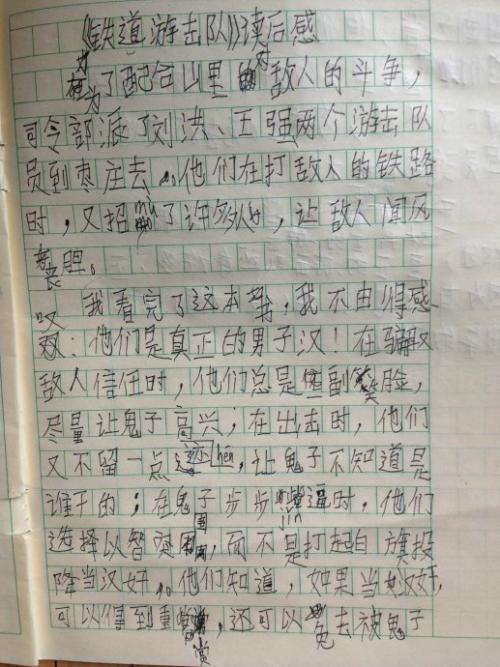 《铁道游击队》读后感
为了配合山里对敌人的斗争，
司令部派了刘洪、王强两个游击队
员到枣庄去，他们在打敌人的铁路
时，又招mù了许多人，让敌人闻风
丧胆。
我看完了这本书，我不由得感
叹：他们是真正的男子汉！在骗取
敌人信任时，他们总是副笑脸，
尽量让鬼子高兴；在出击时，他们
又不留一点迹hén，让鬼子不知道是
谁干的；在鬼子步步jǐn逼时，他们
选择以智突围，而不是打起白旗投
降当汉奸。他们知道，如果当汉奸，
可以得到重赏，还可以免去被鬼子